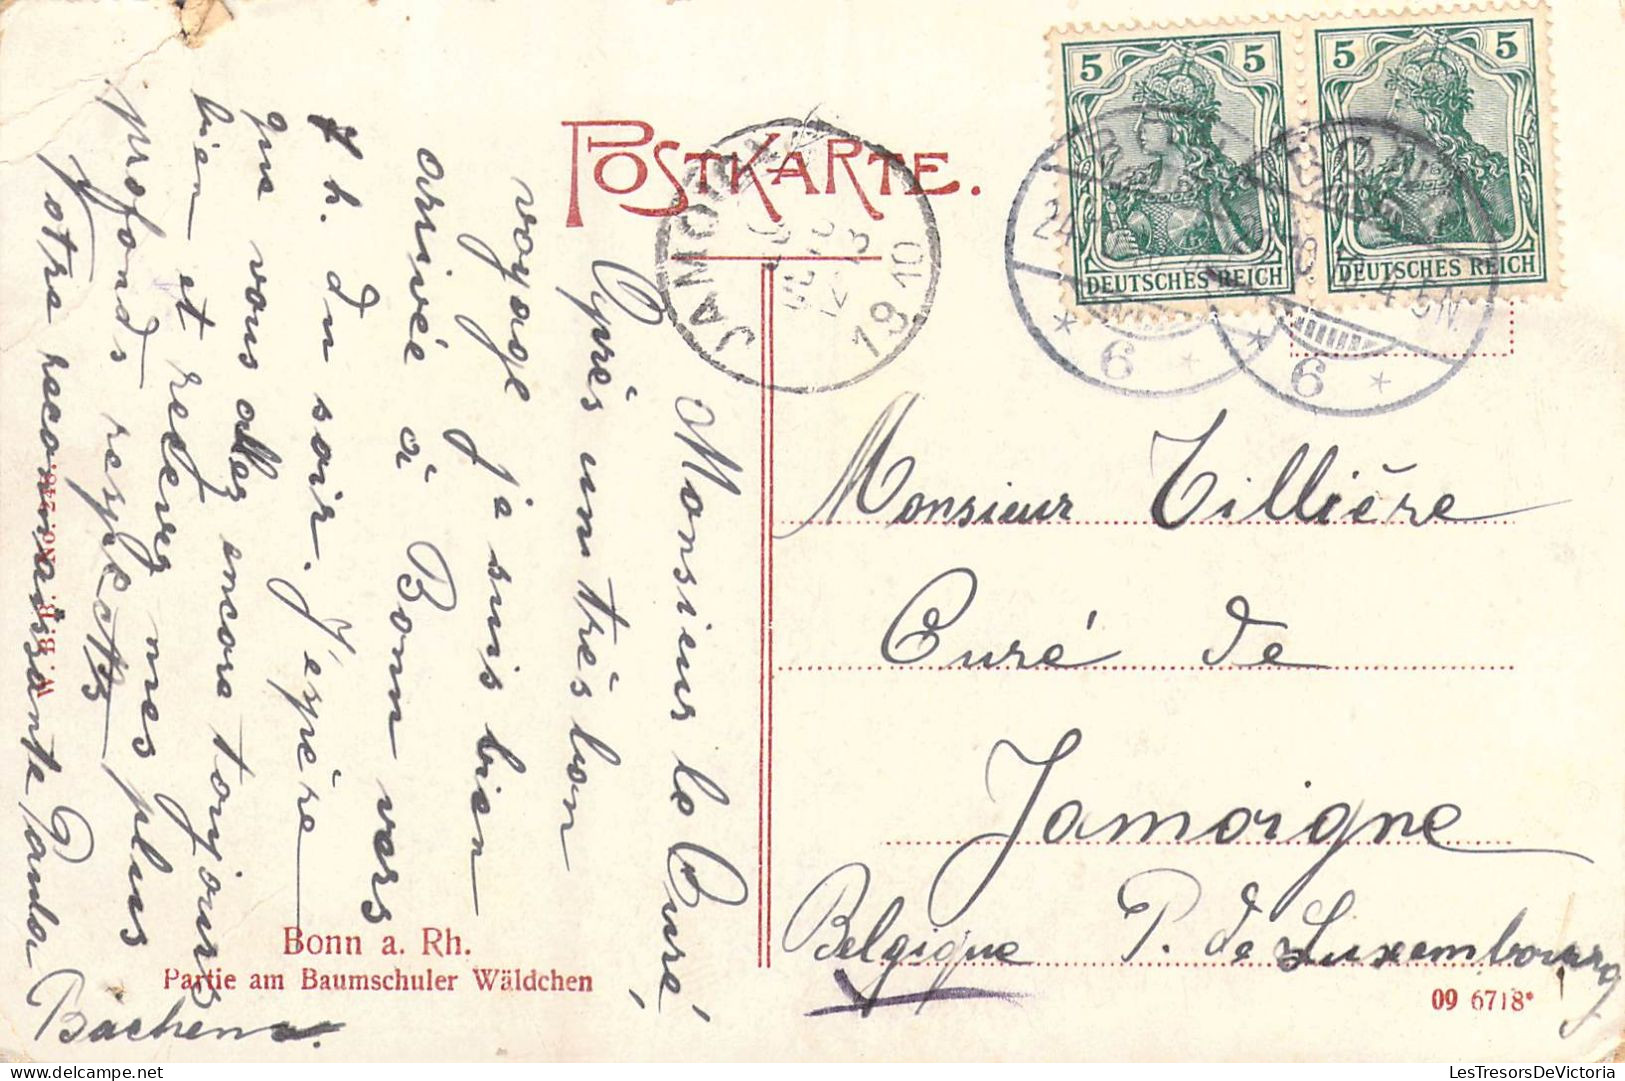 POSTKARTE.
5 5
DEUTSCHES REICH
5 5
DEUTSCHES REICH
BONN
6
BONN
4-5N.
6
JAMOIGNE
12-13
1910
Monsieur le Curé,
Après un très bon
voyage je suis bien
arrivée à Bonn vers
7 h. du soir. J'espère
que vous allez encore toujours
bien et redeurs mes plus
profonds respects
Votre reconnaissante Paula
Bachem.
Monsieur Tillière
Curé de
Jamoigne
Belgique P. de Luxembourg
Bonn a. Rh.
Partie am Baumschuler Wäldchen
09 6718*
LesTresorsDeVictoria